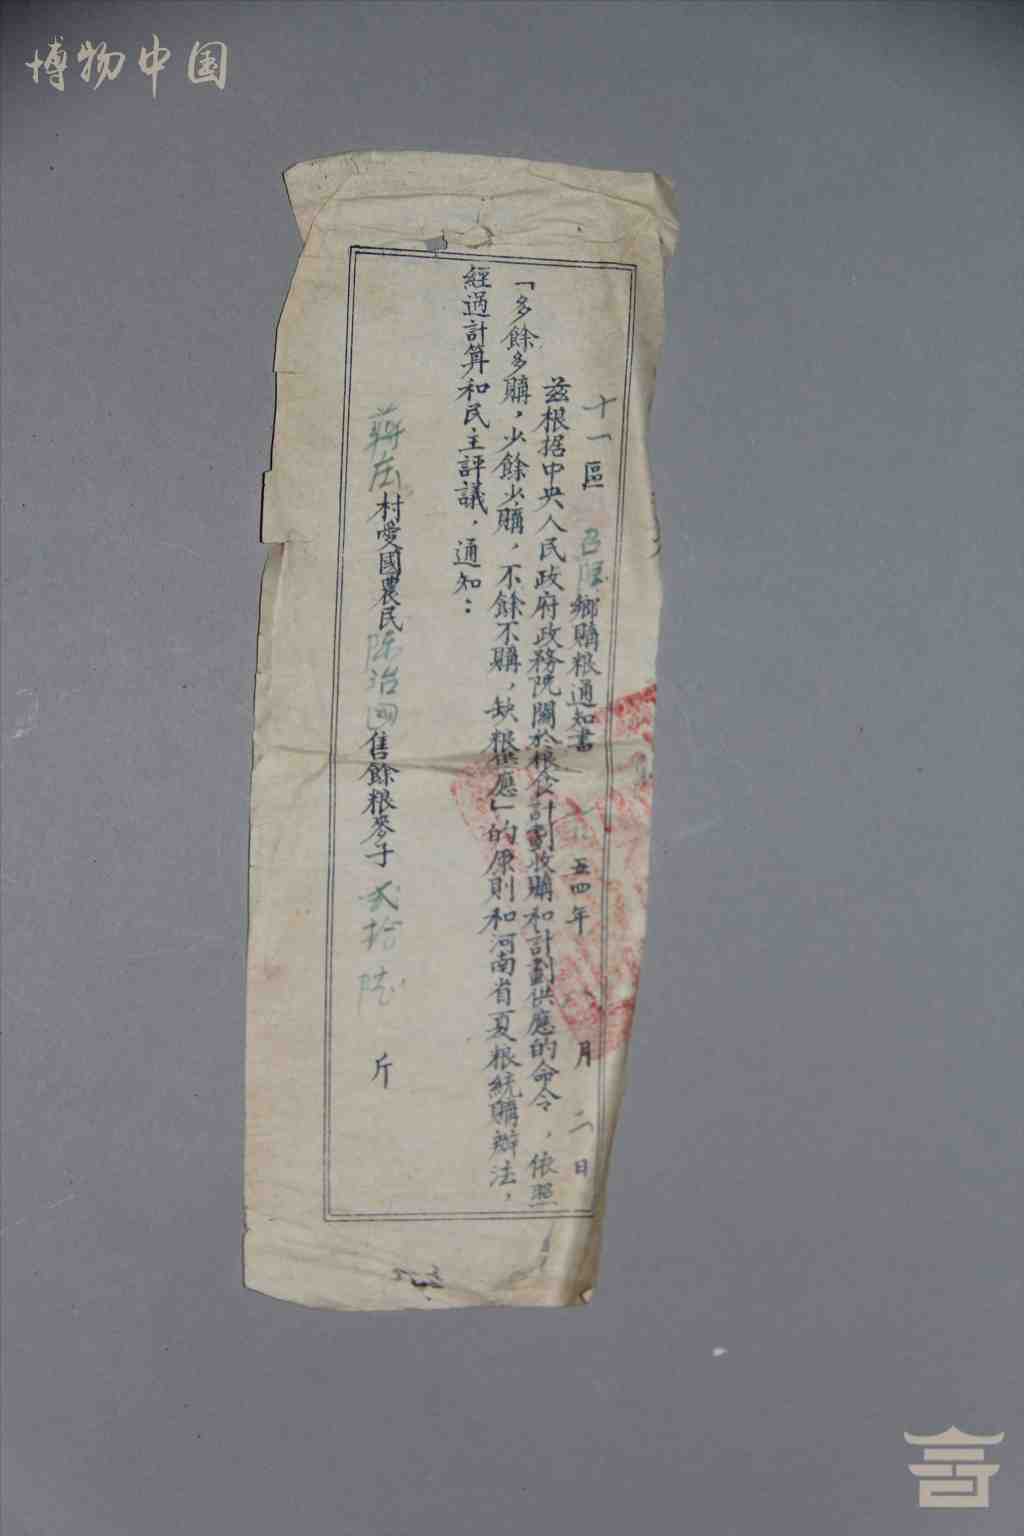 博物中国
十一區 召陵鄉購粮通知書 一九五四年 八月二日
茲根据中央人民政府政務院關於粮食計劃收購和計劃供應的命令，依照
「多餘多購，少餘少購，不餘不購，缺粮供應」的原則和河南省夏粮統購辦法，
經過計算和民主評議，通知：
蔣庄村愛國農民陈治国售餘粮麥子 弍拾陆 斤